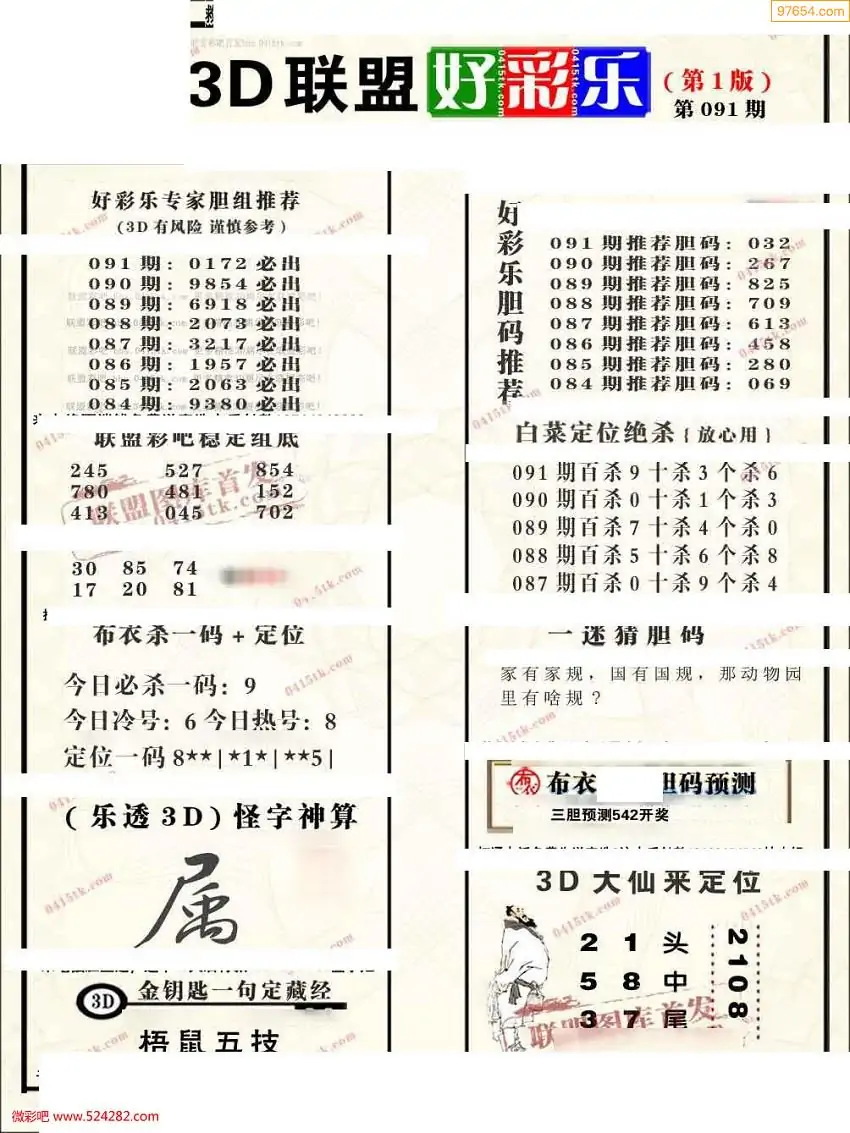 97654.com
3D联盟好彩乐
(第1版)
第091期
好彩乐专家胆组推荐
(3D有风险 谨慎参考)
091期: 0172必出
090期: 9854必出
089期: 6918必出
088期: 2073必出
087期: 3217必出
086期: 1957必出
085期: 2063必出
084期: 9380必出
联盟彩吧稳定组底
245 527 854
780 481 152
413 045 702
30 85 74
17 20 81
布衣杀一码+定位
今日必杀一码: 9
今日冷号: 6 今日热号: 8
定位一码 8**|*1*|**5|
(乐透3D)怪字神算
属
3D 金钥匙一句定藏经
梧鼠五技
好彩乐胆码推荐
091期推荐胆码: 032
090期推荐胆码: 267
089期推荐胆码: 825
088期推荐胆码: 709
087期推荐胆码: 613
086期推荐胆码: 458
085期推荐胆码: 280
084期推荐胆码: 069
白菜定位绝杀{放心用}
091期百杀9十杀3个杀6
090期百杀0十杀1个杀3
089期百杀7十杀4个杀0
088期百杀5十杀6个杀8
087期百杀0十杀9个杀4
一迷猜胆码
家有家规,国有国规,那动物园
里有啥规?
布衣 胆码预测
三胆预测542开奖
3D大仙来定位
2 1 头
5 8 中
3 7 尾
2108
联盟图库首发
0415tk.com
微彩吧 www.524282.com